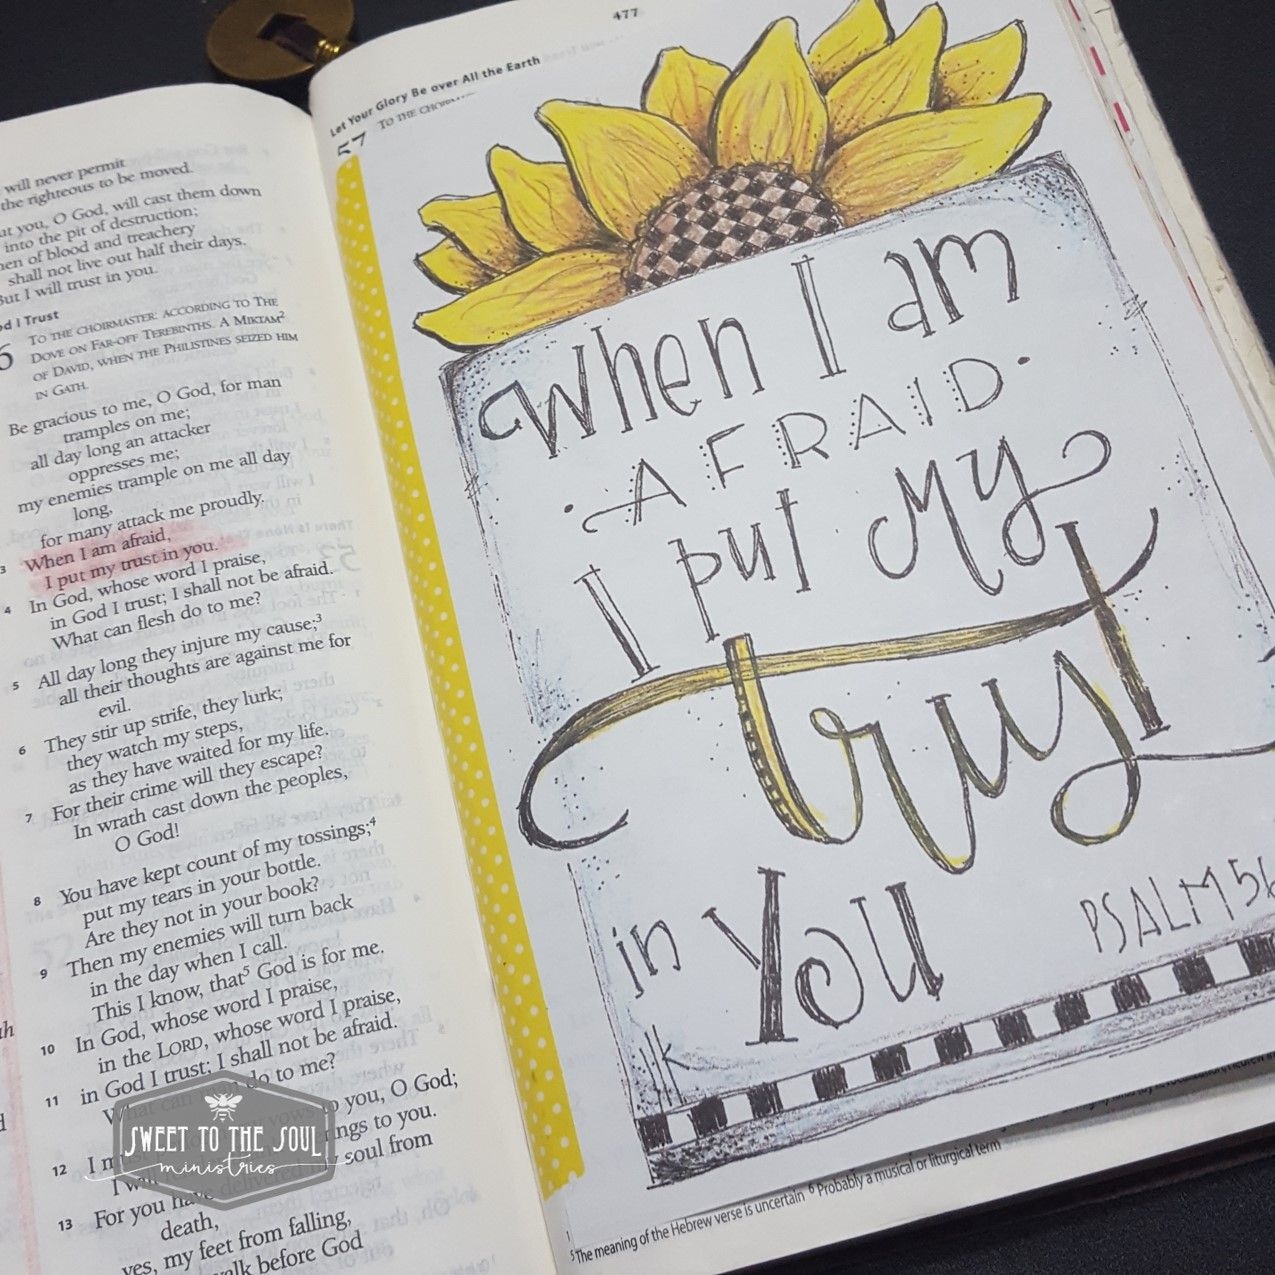 will never permit
the righteous to be moved.
you, O God, will cast them down
into the pit of destruction;
men of blood and treachery
shall not live out half their days.
But I will trust in you.
I Trust
TO THE CHOIRMASTER: ACCORDING TO THE
DOVE ON FAR-OFF TEREBINTHS. A MIKTAM2
OF DAVID, WHEN THE PHILISTINES SEIZED HIM
IN GATH.
Be gracious to me, O God, for man
tramples on me;
all day long an attacker
oppresses me;
my enemies trample on me all day
long,
for many attack me proudly.
3 When I am afraid,
I put my trust in you.
4 In God, whose word I praise,
in God I trust; I shall not be afraid.
What can flesh do to me?
5 All day long they injure my cause;3
all their thoughts are against me for
evil.
6 They stir up strife, they lurk;
they watch my steps,
as they have waited for my life.
7 For their crime will they escape?
In wrath cast down the peoples,
O God!
8 You have kept count of my tossings;4
put my tears in your bottle.
Are they not in your book?
9 Then my enemies will turn back
in the day when I call.
This I know, that5 God is for me.
10 In God, whose word I praise,
in the LORD, whose word I praise,
11 in God I trust; I shall not be afraid.
do to me?
12 I vows to you, O God;
I to you.
13 For you have delivered my soul from
death,
yes, my feet from falling,
walk before God
SWEET TO THE SOUL
ministries
477
Let Your Glory Be over All the Earth
57 TO THE
When I am
AFRAID
I put My
trust
in You
PSALM 56
5 The meaning of the Hebrew verse is uncertain 6 Probably a musical or liturgical term